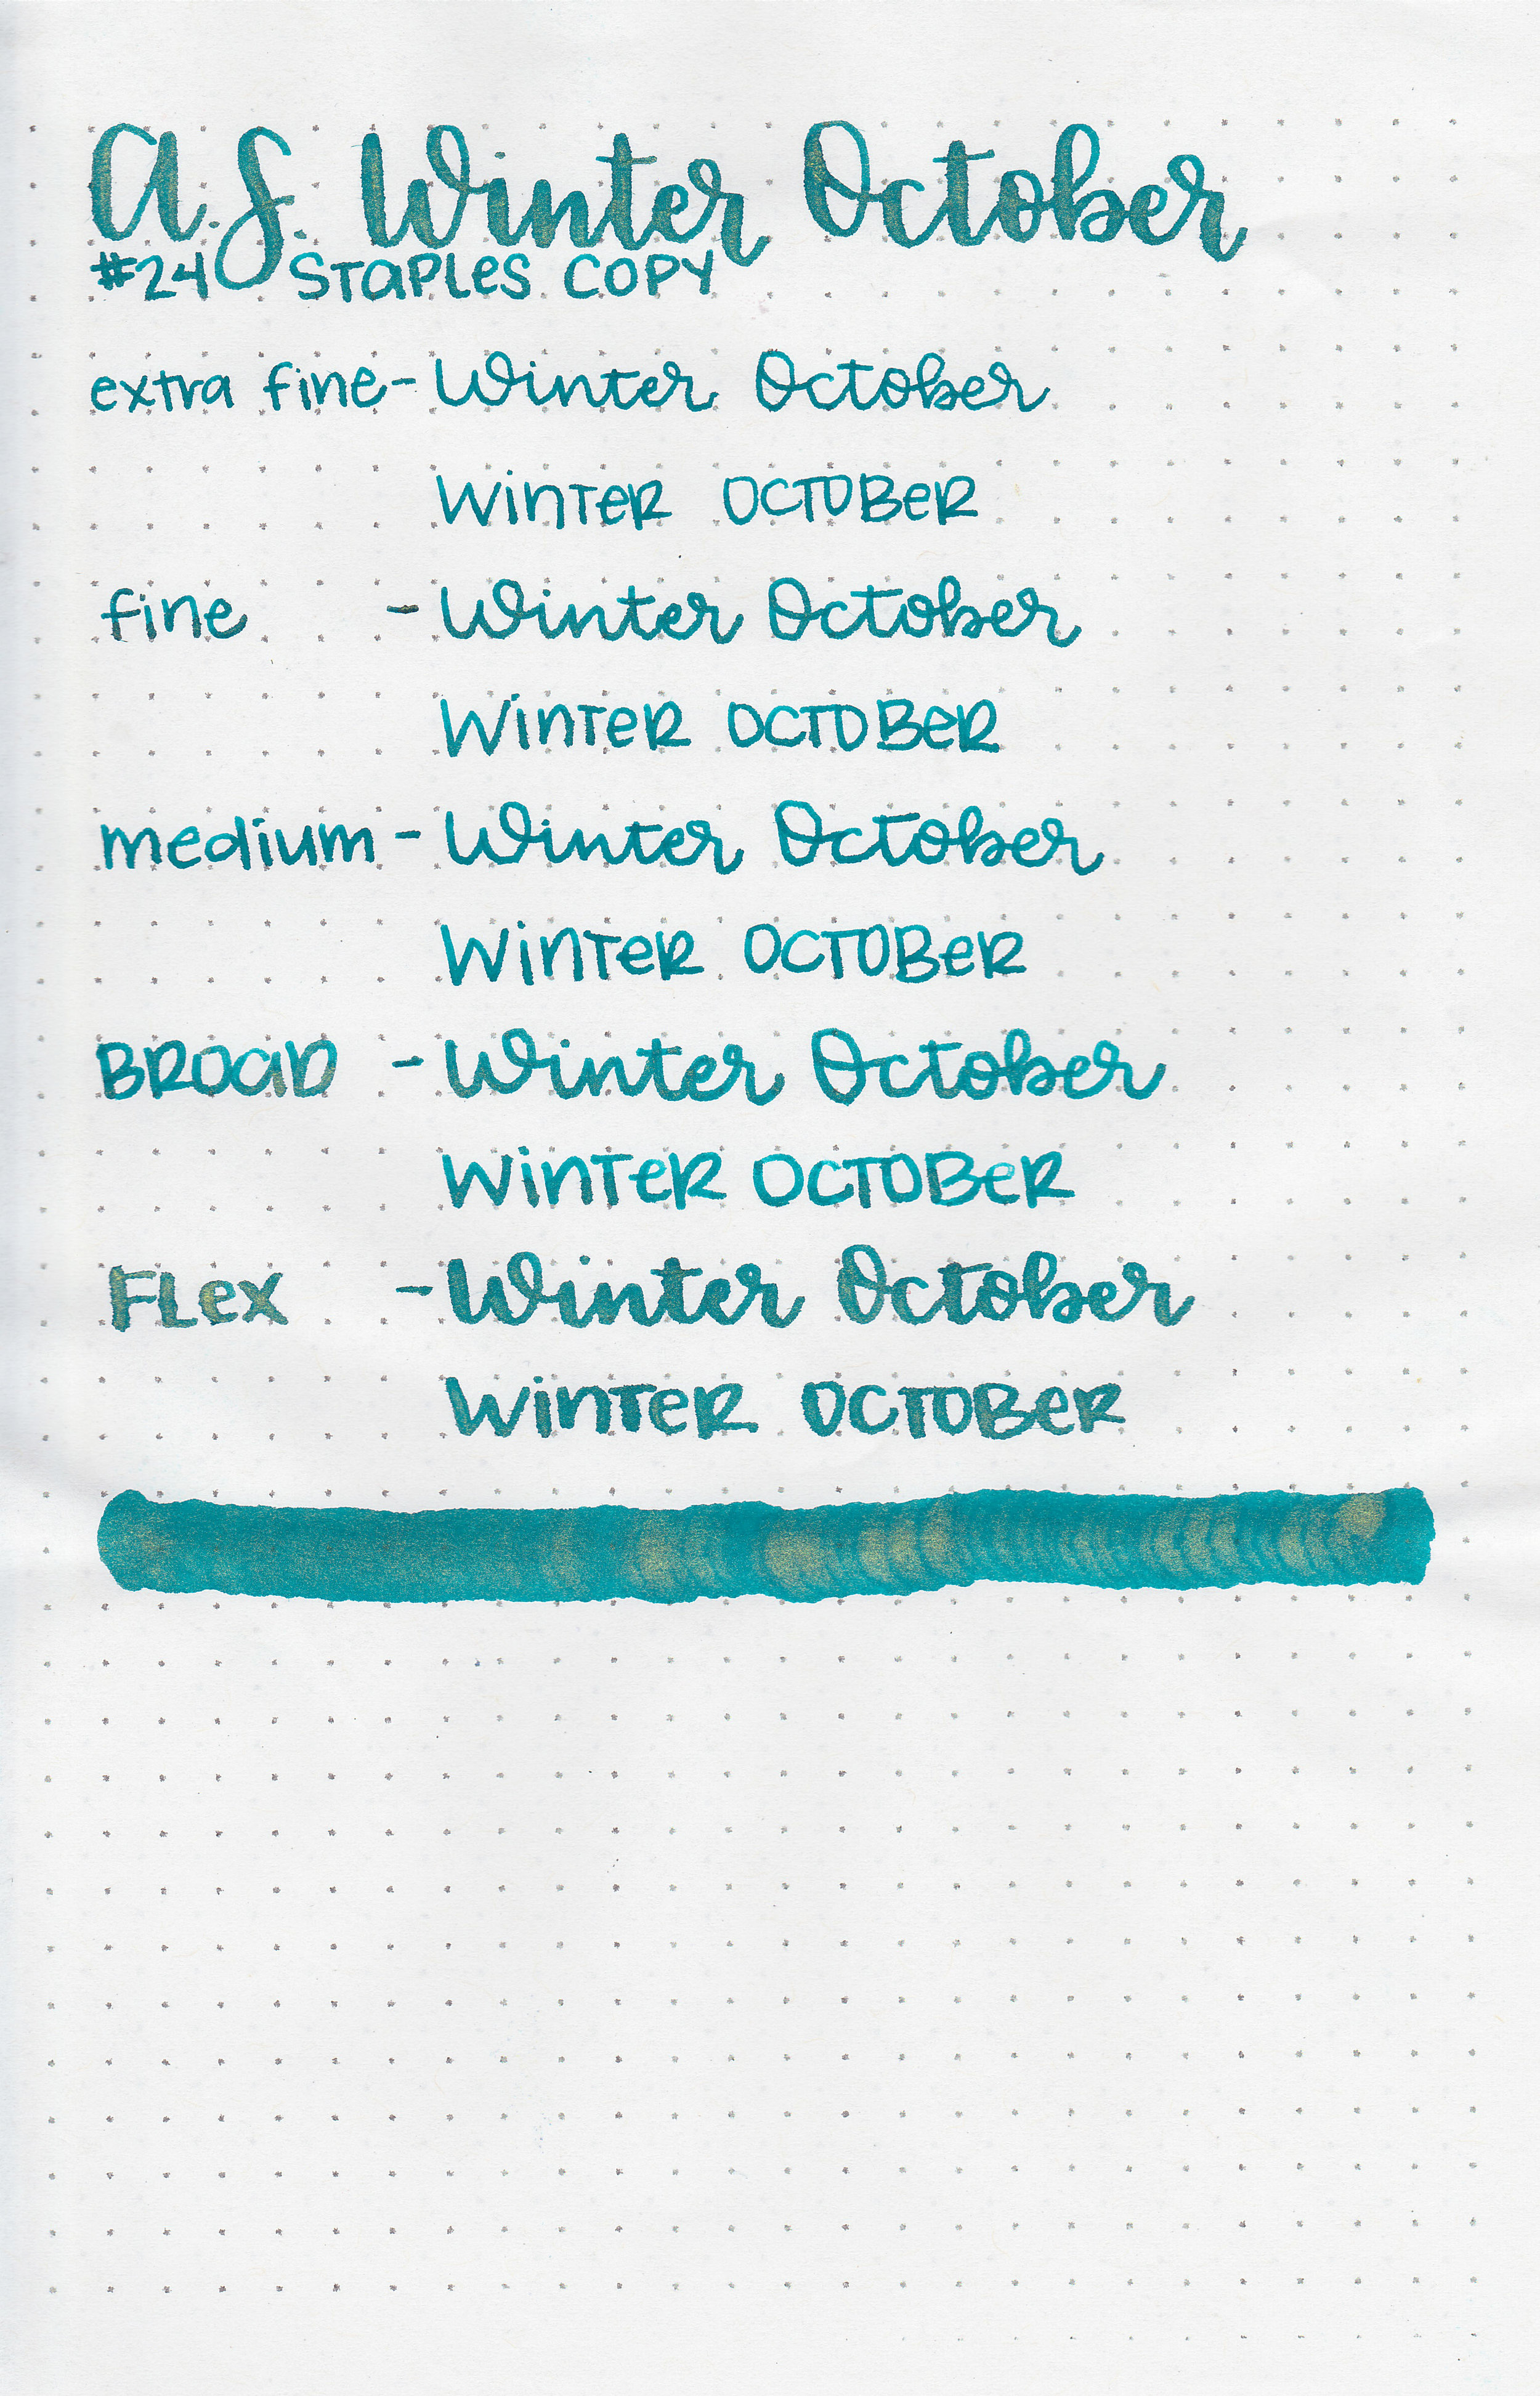 A.S. Winter October
#24 Staples Copy
extra fine - Winter October
Winter October
fine - Winter October
Winter October
medium - Winter October
Winter October
Broad - Winter October
Winter October
Flex - Winter October
Winter October